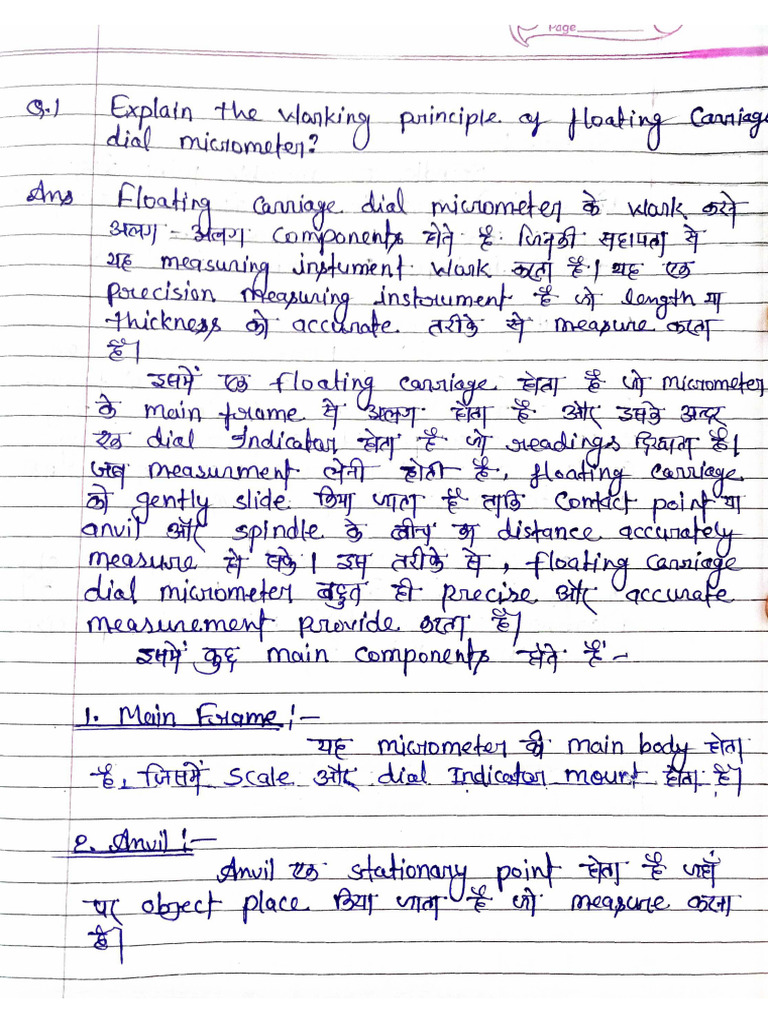 Page
Q.1 Explain the Working principle of floating Carriage
dial micrometer?
Ans Floating Carriage dial micrometer के work करते
अलग - अलग components होते है जिनकी सहायता से
यह measuring instument work करता है। यह एक
precision measuring instrument है जो length या
thickness को accurate तरीके से measure करता
है।
इसमें एक floating carriage होता है जो micrometer
के main frame से अलग होता है और उसके अन्दर
एक dial Indicator होता है जो readings दिखाता है।
जब measurment लेनी होती है, floating carriage
को gently slide किया जाता है ताकि Contact point या
anvil और spindle के बीच का distance accurately
measure हो सके। इस तरीके से, floating carriage
dial micrometer बहुत ही precise और accurate
measurement provide करता है।
इसमें कुछ main components होते हैं -
1. Main Frame :-
यह micrometer की main body होता
है, जिसमें Scale और dial Indicator mount होता है।
2. Anvil :-
Anvil एक stationary point होता है जहाँ
पर object place किया जाता है जो measure करना
है।